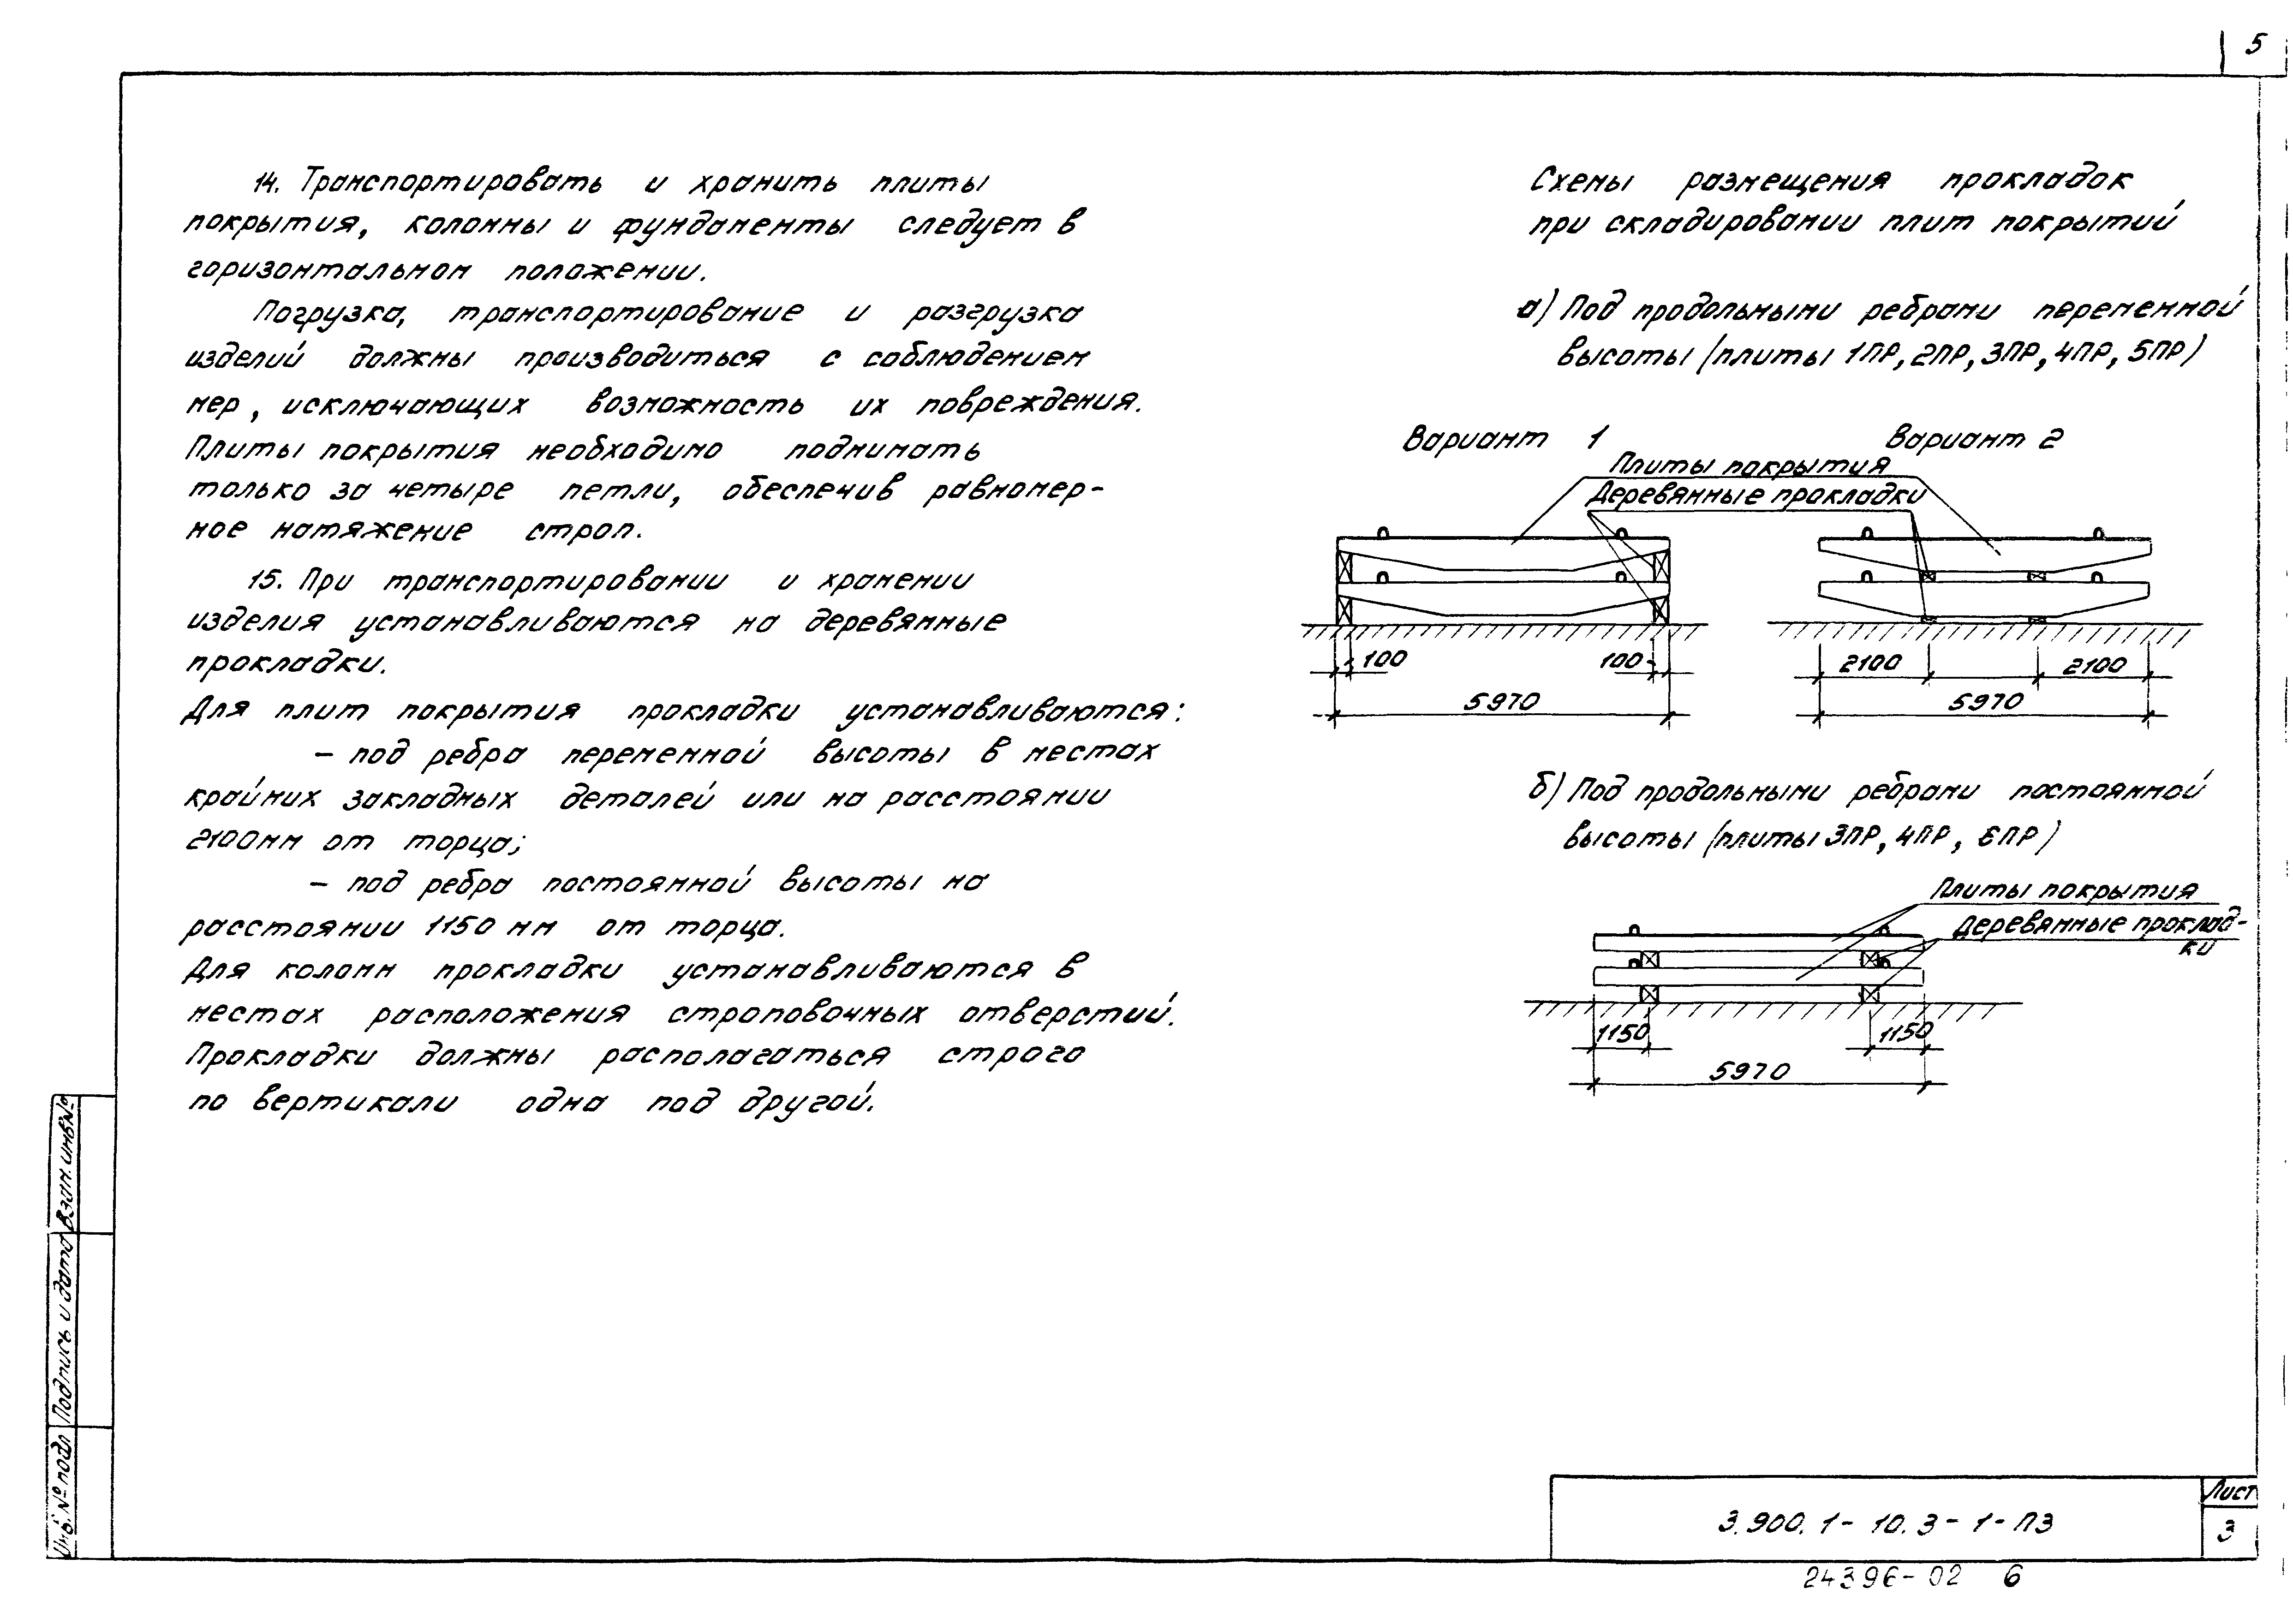 5
14. Транспортировать и хранить плиты
покрытия, колонны и фундаменты следует в
горизонтальном положении.
Погрузка, транспортирование и разгрузка
изделий должны производиться с соблюдением
мер, исключающих возможность их повреждения.
Плиты покрытия необходимо поднимать
только за четыре петли, обеспечив равномер-
ное натяжение строп.
15. При транспортировании и хранении
изделия устанавливаются на деревянные
прокладки.
Для плит покрытия прокладки устанавливаются:
– под ребра переменной высоты в местах
крайних закладных деталей или на расстоянии
2100мм от торца;
– под ребра постоянной высоты на
расстоянии 1150 мм от торца.
Для колонн прокладки устанавливаются в
местах расположения строповочных отверстий.
Прокладки должны располагаться строго
по вертикали одна под другой.
Схемы размещения прокладок
при складировании плит покрытий
а) Под продольными ребрами переменной
высоты (плиты 1ПР, 2ПР, 3ПР, 4ПР, 5ПР)
Вариант 1
Вариант 2
Плиты покрытия
Деревянные прокладки
100
100
5970
2100
2100
5970
б) Под продольными ребрами постоянной
высоты (плиты 3ПР, 4ПР, 6ПР)
Плиты покрытия
Деревянные проклад-
ки
1150
1150
5970
Взам. инв№
Подпись и дата
Инв. № подл
3.900.1-10.3-1-ПЗ
Лист
3
24396-02 6